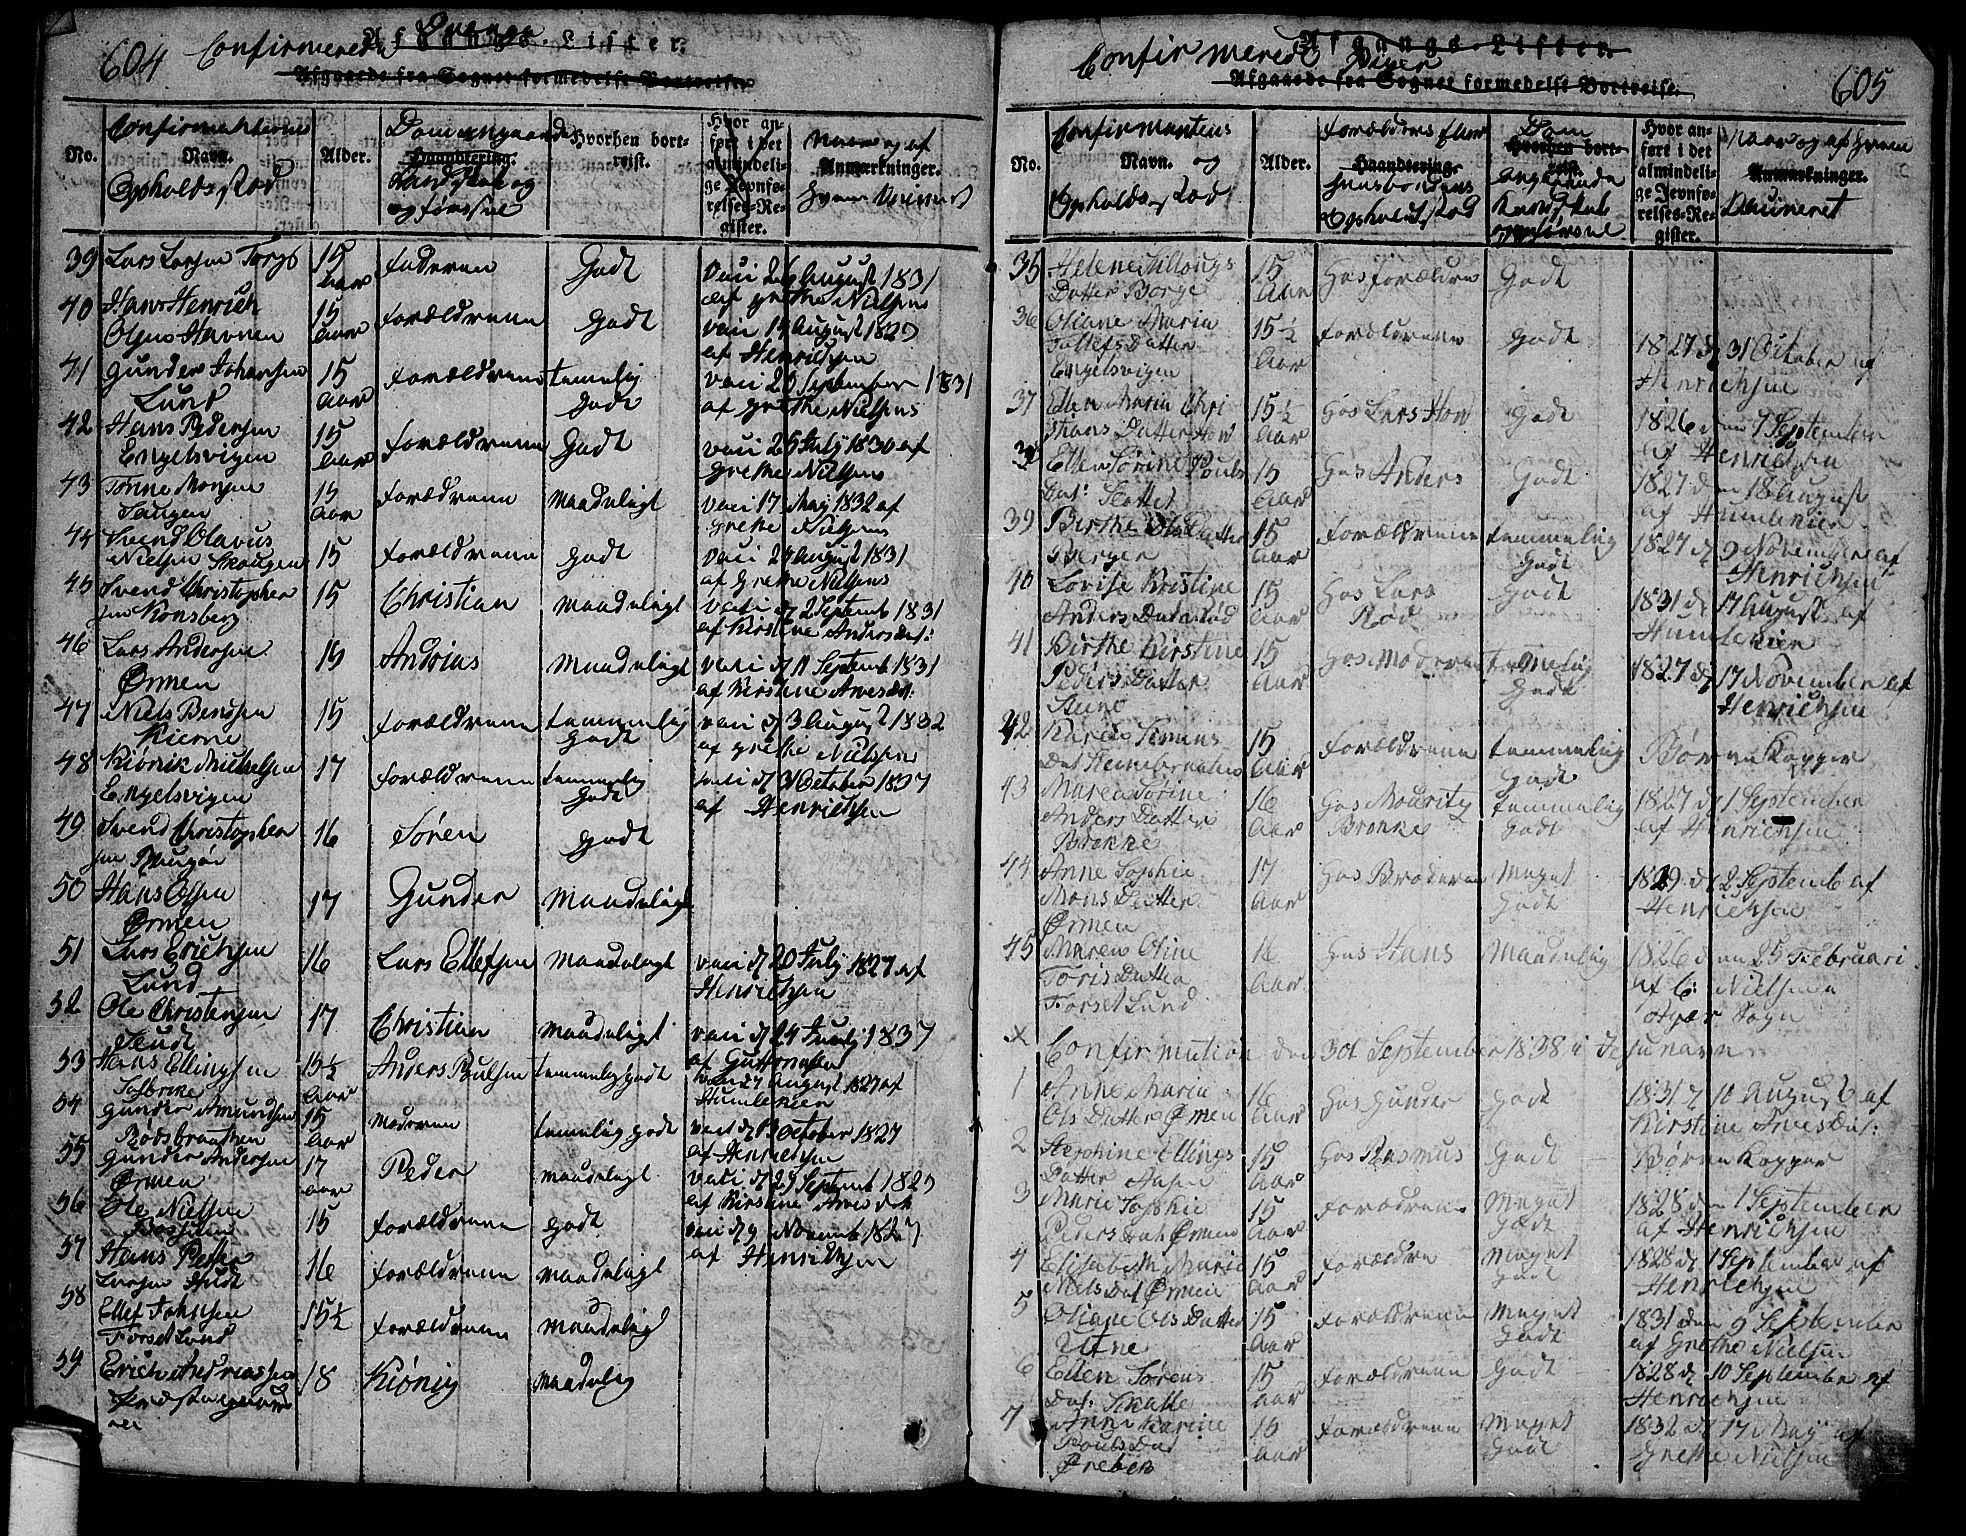 604 Confirmerede Drenge
Afgangs-Lister.
Afgaaede fra Sognet formedelst Bortreise.
No.
Confirmanterne
Navn.
Opholds stad
Alder.
Dom angaaende
Haandtering.
Kundskab og
opførsel
Hvorhen bortreist.
Hvor anført i det almindelige Jevnførelses-Register.
Naar og af
Anmærkninger.
hvem Vaccineret
39 Lars Larsen Torgs 15 Aar Faderen Godt Vacci 26 August 1831
af Grethe Nielsens
40 Hans Henrich
Olsens Havnen 15 Aar Forældrene Godt vacci 14 August 1827
af Henrichsen
41 Gunder Johansen
Lund 15 Aar Forældrene temmelig
Godt vacci 26 September 1831
af Grethe Nielsens
42 Hans Pedersen
Engelsvigen 15 Aar Forældrene Godt vacci 25 July 1830 af
Grethe Nielsens
43 Tonne Monsen
Tangen 15 Aar Forældrene Maadeligt vacci 17 May 1832 af
Grethe Nielsens
44 Svend Olavus
Nielsen Skougen 15 Forældrene Godt vacci 24 August 1831
af Grethe Nielsens
45 Svend Christopher
sen Konsberg 15 Christian Maadeligt vacci d 2 Septemb 1831
af Kirstine Anders Dat:
46 Lars Andersen
Ørmen 16 Andrias Maadeligt vacci d 11 Septemb 1831
af Kirstine
47 Niels Bendsen
Kierne 15 Forældrene temmelig
Godt vacci d 3 August 1832
af Grethe Nielsens
48 Kiønik Michelsen
Engelsvigen 17 Forældrene temmelig
Godt vacci d 31 October 1827
af Henrichsen
49 Svend Christopher
sen Rougør 16 Søren Godt
50 Hans Olsen
Ørmen 17 Gunder Maadeligt
51 Lars Erichsen
Lund 16 Lars Ellefsen Maadeligt vacci d 20 July 1827 af
Henrichsen
52 Ole Christensen
17 Christian Maadeligt vacci d 24 July 1837
af
53 Hans Ellingsen
15½ Aar Anders Poulsen temmelig godt August 1827 af
Humlekier
54 Gunder Amundsen
Rødsbraathen 15 Aar Moderen temmelig godt vacci d October 1827
af Henrichsen
55 Gunder Andersen
Ørmen 17 Aar Peder Maadeligt vacci d 29 Septemb 1827
af Kirstine
56 Ole Nielsen
15 Forældrene Godt vacci d 9 Novemb 1827
af Henrichsen
57 Hans Petter
Larsen 16 Forældrene Maadeligt
58 Ellef Johnsen
Forset Lund 15½ Forældrene Maadeligt
59 Erich Andreassen
18 Kiønig Maadelig
Confirmerede Piger 605
Afgangs-Lister.
Afgaaede fra Sognet formedelst Bortreise.
No.
Confirmantens
Navn. og
Opholds Stad
Alder.
Forældrers Eller
Haandtering.
Huusbondens
Opholds Stad
Dom
Hvorhen bortreist.
Angaaende
Kundskab
og opførsel
Hvor anført i det almindelige Jevnførelses-Register.
Naar og af hvem
Anmærkninger.
Vaccineret
35 Helene Tillongs
Datter Borge 15 Aar Hos forældre Godt
36 Oliane Maria
Tollefs Datter
Engelsvigen 15½ Aar Forældrene Godt 1827 d 31 October af
Henrichsen
37 Ellen Maria Chri
sthans Datter How 15½ Aar Hos Lars How Godt 1826 den 7 September
af Henrichsen
38 Ellen Sørine Pouls
Dat: Slottet 15 Aar Hos Anders Godt 1827 den 18 August
af Humlekier
39 Birthe Ols Datter
Berger 15 Aar Forældrene temmelig
Godt 1827 d 9 November af
Henrichsen
40 Lovise Kristine
Anders Dater Rød 15 Aar Hos Lars
Rød Godt 1831 d 17 August af
Humlekier
41 Birthe Kirstine
Peders Datter
Lund 15 Aar Hos Moderen temmelig
Godt 1827 d 17 November af
Henrichsen
42 Karen Simens
Dat 15 Aar Forældrene temmelig
Godt Børnekopper
43 Maren Sørine
Anders Datter
Brønke 16 Aar Hos Mouritz
Brønke temmelig
Godt 1827 d 1 September
af Henrichsen
44 Anne Sophie
Mons Datter
Ørmen 17 Aar Hos Broderen Meget
Godt 1829 d 2 Septemb af
Henrichsen
45 Maren Oline
Toris Datter
Forset Lund 16 Aar Hos Hans Maadelig 1826 den 25 Februari
af C: Nielsen
Sogn
x Confirmation den 30t September 1838 i Jesu navn
1 Anne Maria
Ols Datter Ørmen 16 Aar Hos Gunder Godt 1831 d 10 August af
Kirstine Dat:
2 Stephine Ellings
Datter 15 Aar Hos Rasmus Godt Børnekopper
3 Marie Sophie
Peders Dat Ørmen 15 Aar Forældrene Meget
Godt 1828 den 1 September
af Henrichsen
4 Elisabeth Marie
Niels Dat Ørmen 15 Aar Forældre Meget
Godt 1828 d 1 September af
Henrichsen
5 Oliane Ols Datter
Utne 15 Aar Forældrene Meget
Godt 1831 den 9 September
af Grethe Nielsen
6 Ellen Sørens
Dat: 15 Aar Forældrene Godt 1828 d 10 September af
Henrichsen
7 Anne Karine
Pouls Dat
Ørebek 15 Aar Forældrene Meget
Godt 1832 d 17 May af
Grethe Nielsen